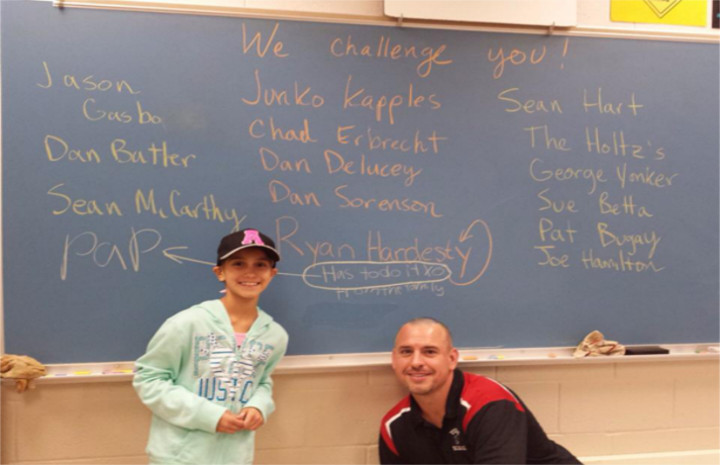 We challenge you!
Jason
Gasba
Dan Butler
Sean McCarthy
pap
Junko Kapples
Chad Erbrecht
Dan Delucey
Dan Sorenson
Ryan Hardesty
Has to do it x0
from the family
Sean Hart
The Holtz's
George Yonker
Sue Betta
Pat Bugay
Joe Hamilton
A